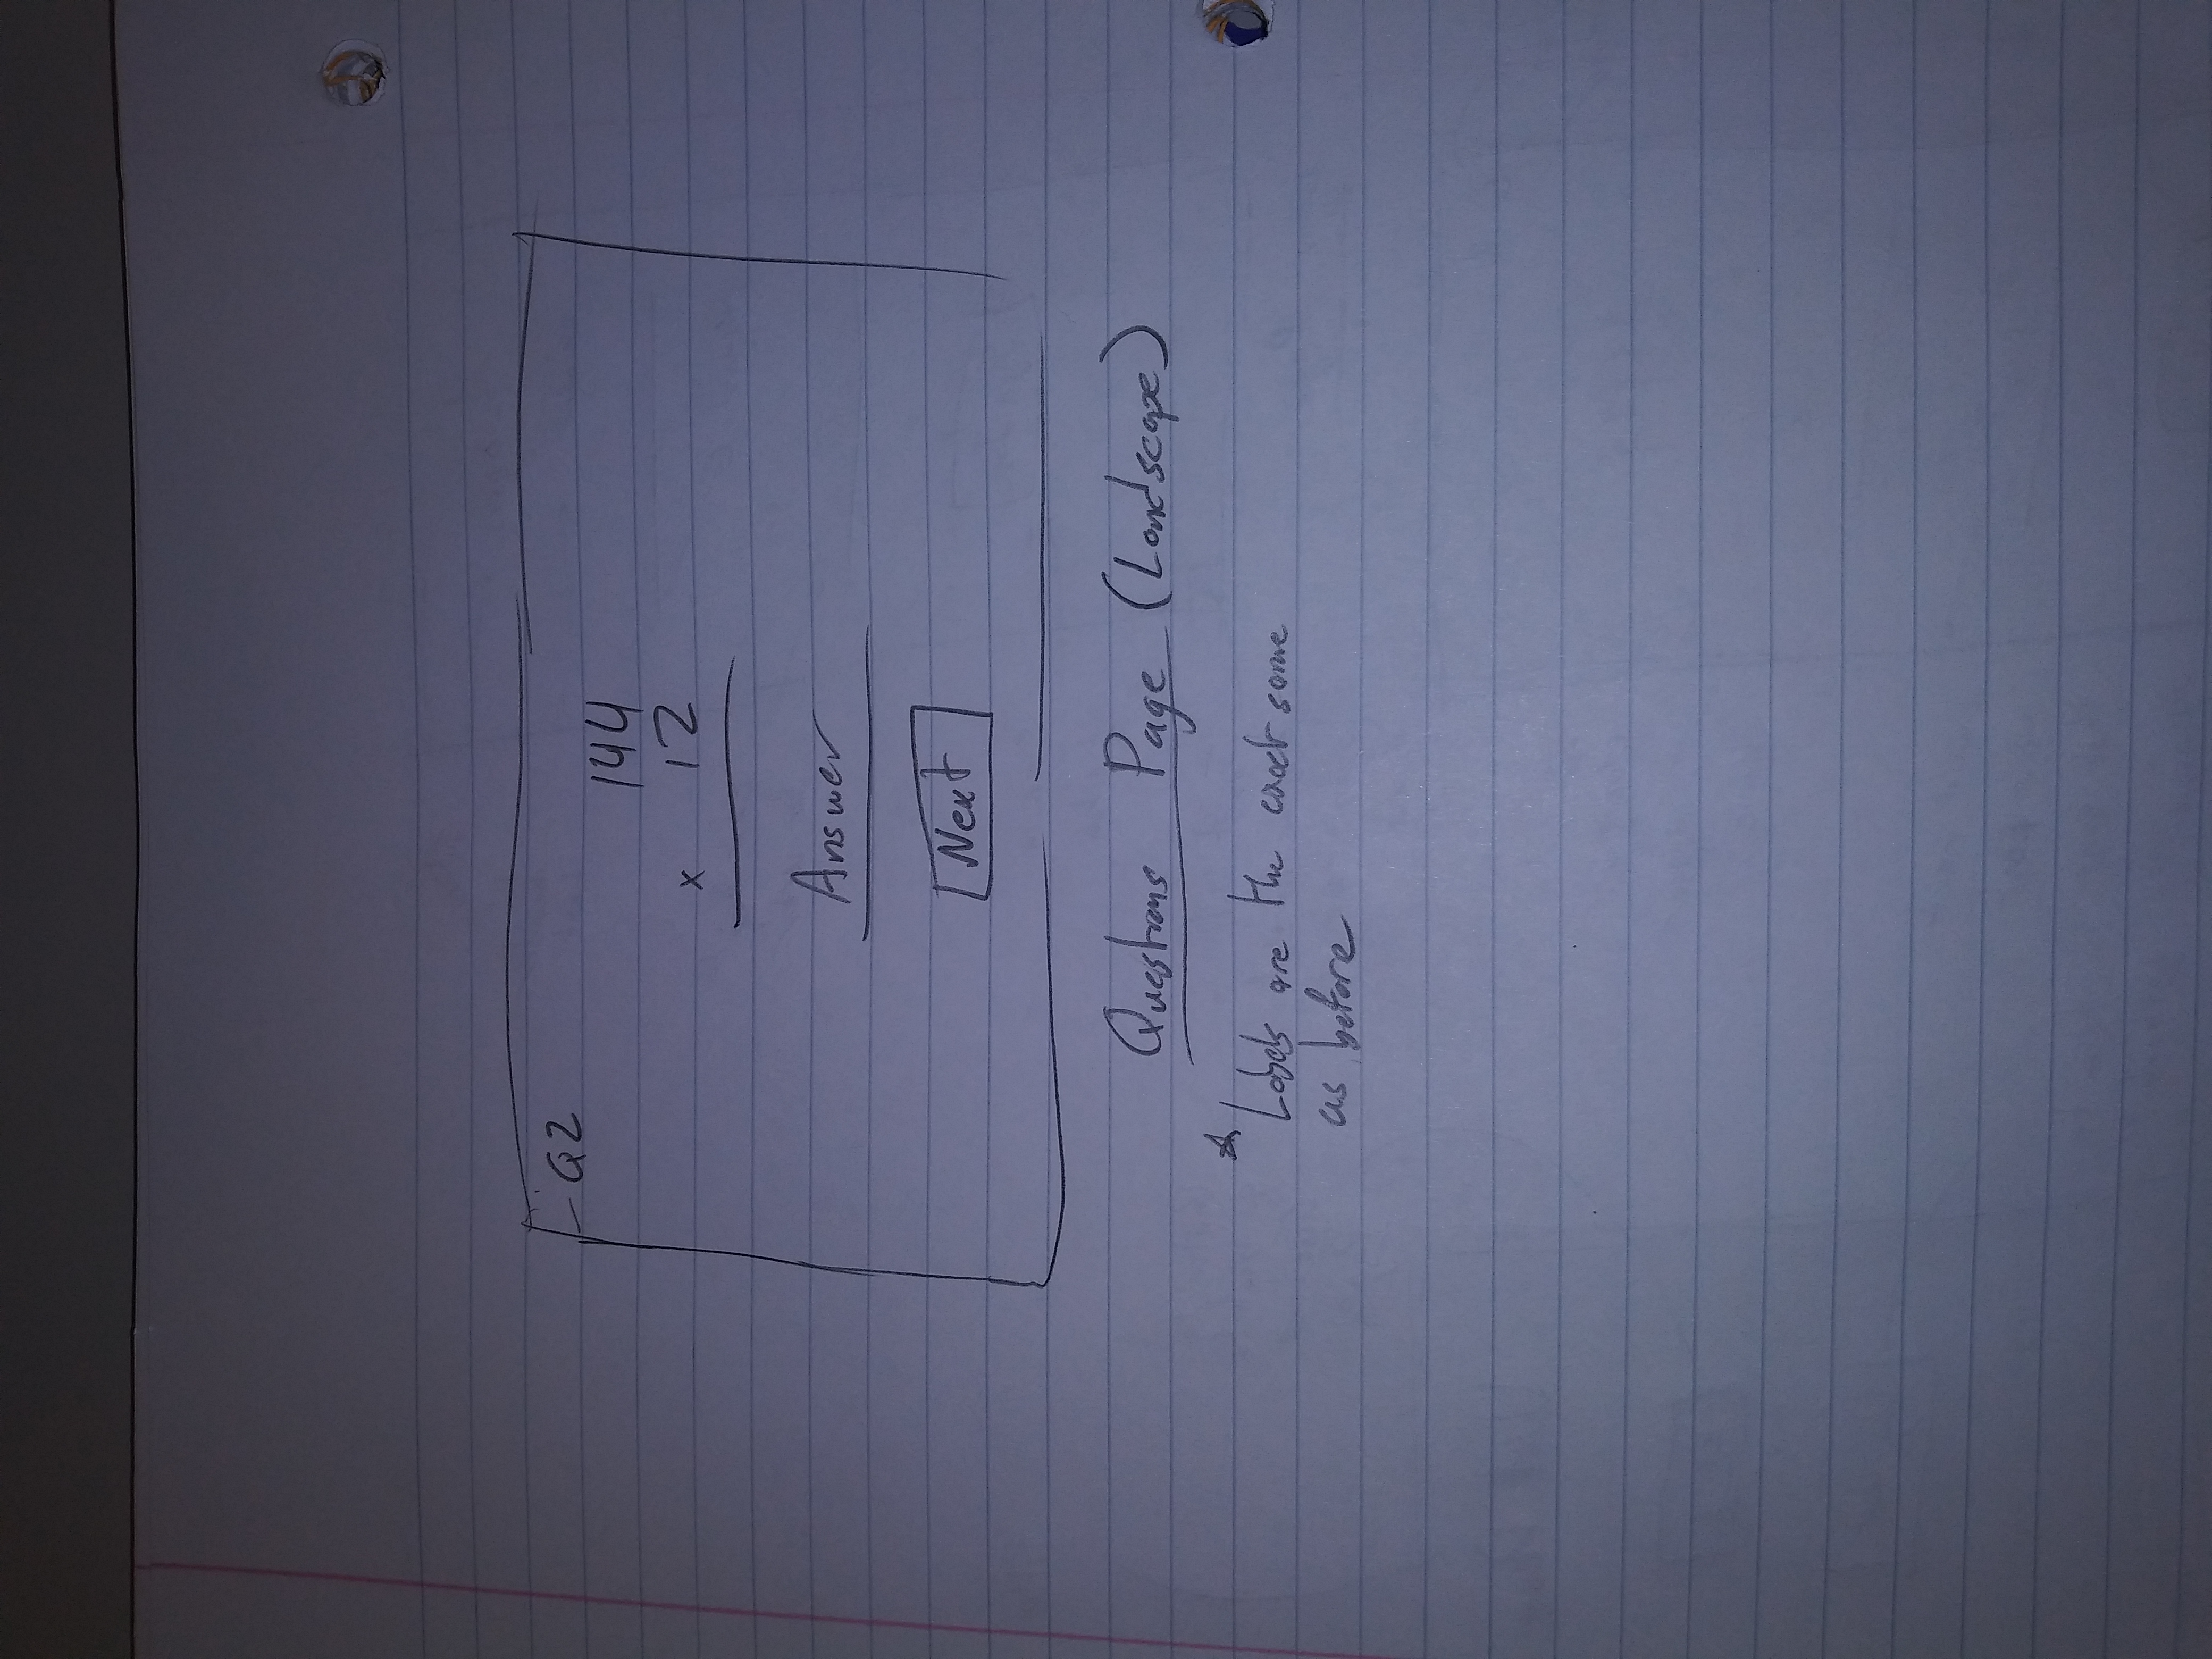 Q2
144
x 12
Answer
Next
Questions Page (Landscape)
* Labels are the exact same
as before